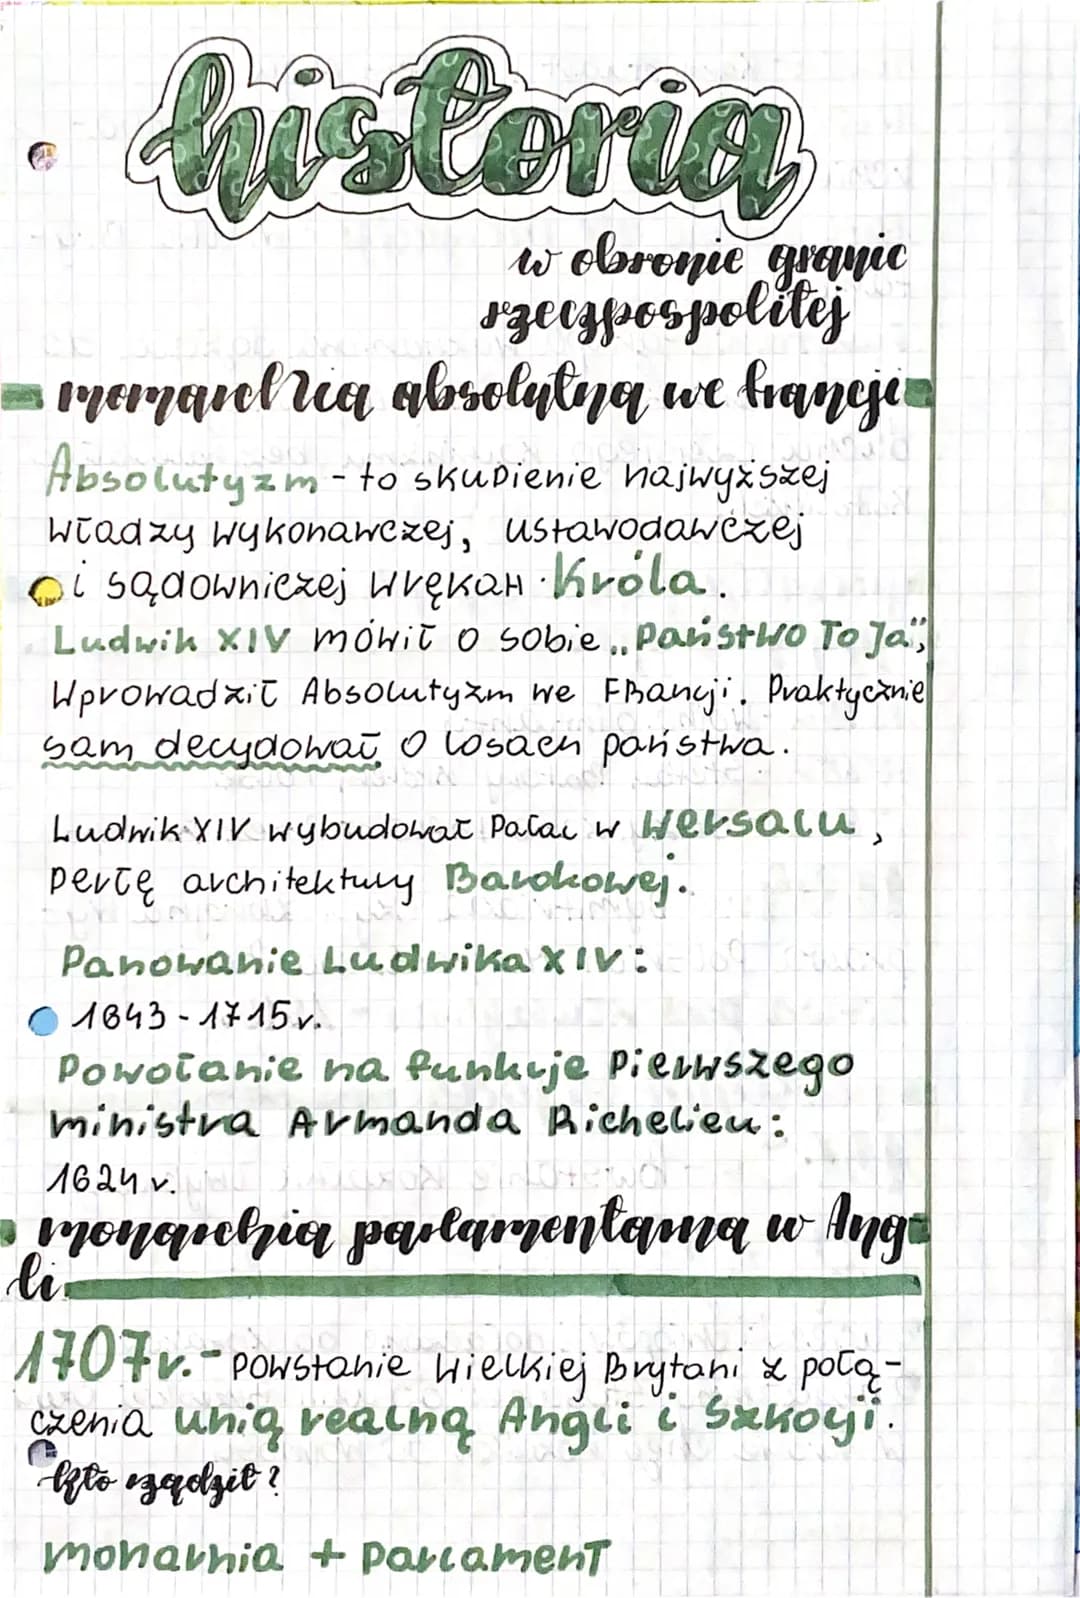 historia
w obronie granic
rzeczpospolitej
monarchia absolutna we francji
Absolutyzm - to skupienie najwyższej
władzy wykonawczej, ustawodawczej
i sądowniczej w rękah Króla.
Ludwik XIV mówił o sobie „Państwo To Ja",
Wprowadził Absolutyzm we Francji. Praktycznie
sam decydował o losach państwa.
Ludwik XIV wybudował Pałac w Wersalu,
perłę architektury Barokowej.
Panowanie Ludwika XIV:
1643 - 1715 r.
Powołanie na funkcje Pierwszego
ministra Armanda Richelieu:
1624 r.
monarchia parlamentarna w Ang-
li
1707 r. - powstanie Wielkiej Brytani z połą-
czenia unią realną Angli i Szkocji.
kto rządził?
monarhia + parlament